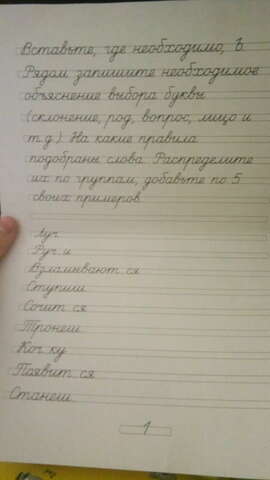 Вставьте, где необходимо, Ь.
Рядом запишите необходимое
объяснение выбора буквы
(склонение, род, вопрос, лицо и
т.д.). На какие правила
подобраны слова. Распределите
их по группам, добавьте по 5
своих примеров.
Луч
Руч и
Вздымают ся
Ступиш
Сочит ся
Тронеш
Коч ку
Появит ся
Станеш
1